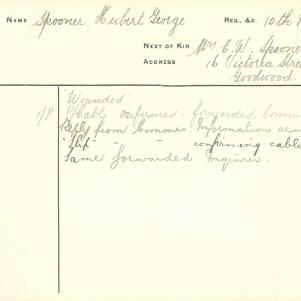 NAME Spooner, Hubert George REG. &C. 10th
NEXT OF KIN Mrs. E. W. Spooner
ADDRESS 16 Victoria Stree
Goodwood.
"Wounded"
1/P. Cable confirmed forwarded Comm
Reply from Commr. Information
"Slip" - " - confirming cable
Same forwarded Inquirer.